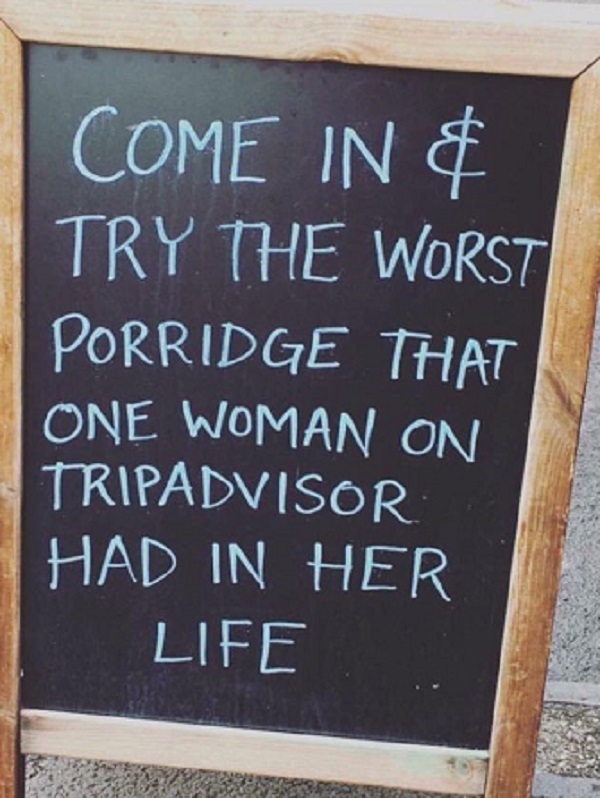 COME IN &
TRY THE WORST
PORRIDGE THAT
ONE WOMAN ON
TRIPADVISOR
HAD IN HER
LIFE